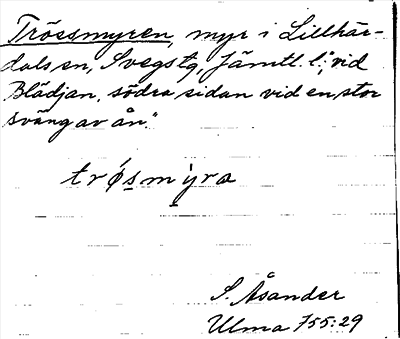 Trössmyren, myr i Lillhär-
dals sn, Svegs tg, Jämtl. l.; "vid
Blädjan, södra sidan vid en stor
sväng av ån."
trǿsmyra
S. Åsander
Ulma 755:29